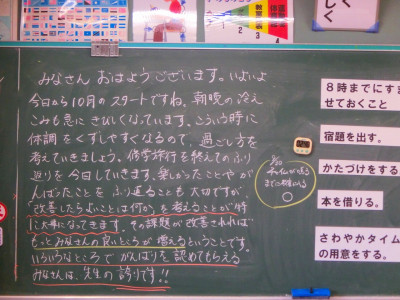 みなさん おはようございます。いよいよ
今日から10月のスタートですね。朝晩の冷え
こみも急にきびしくなっています。こういう時に
体調をくずしやすくなるので、過ごし方を
考えていきましょう。修学旅行を終えてのふり
返りを今日していきます。楽しかったことやが
んばったことをふり返ることも大切ですが、
改善したらよいことは何か、を考えることが特
に大事になってきます。その課題が改善されれば
もっとみなさんの良いところが増えるということです。
いろいろなところでがんばりを認めてもらえる
みなさんは、先生の誇りです!!
チャイムが鳴る
8時までにすま
せておくこと
宿題を出す。
かたづけをする
本を借りる。
さわやかタイム
の用意をする。
しく